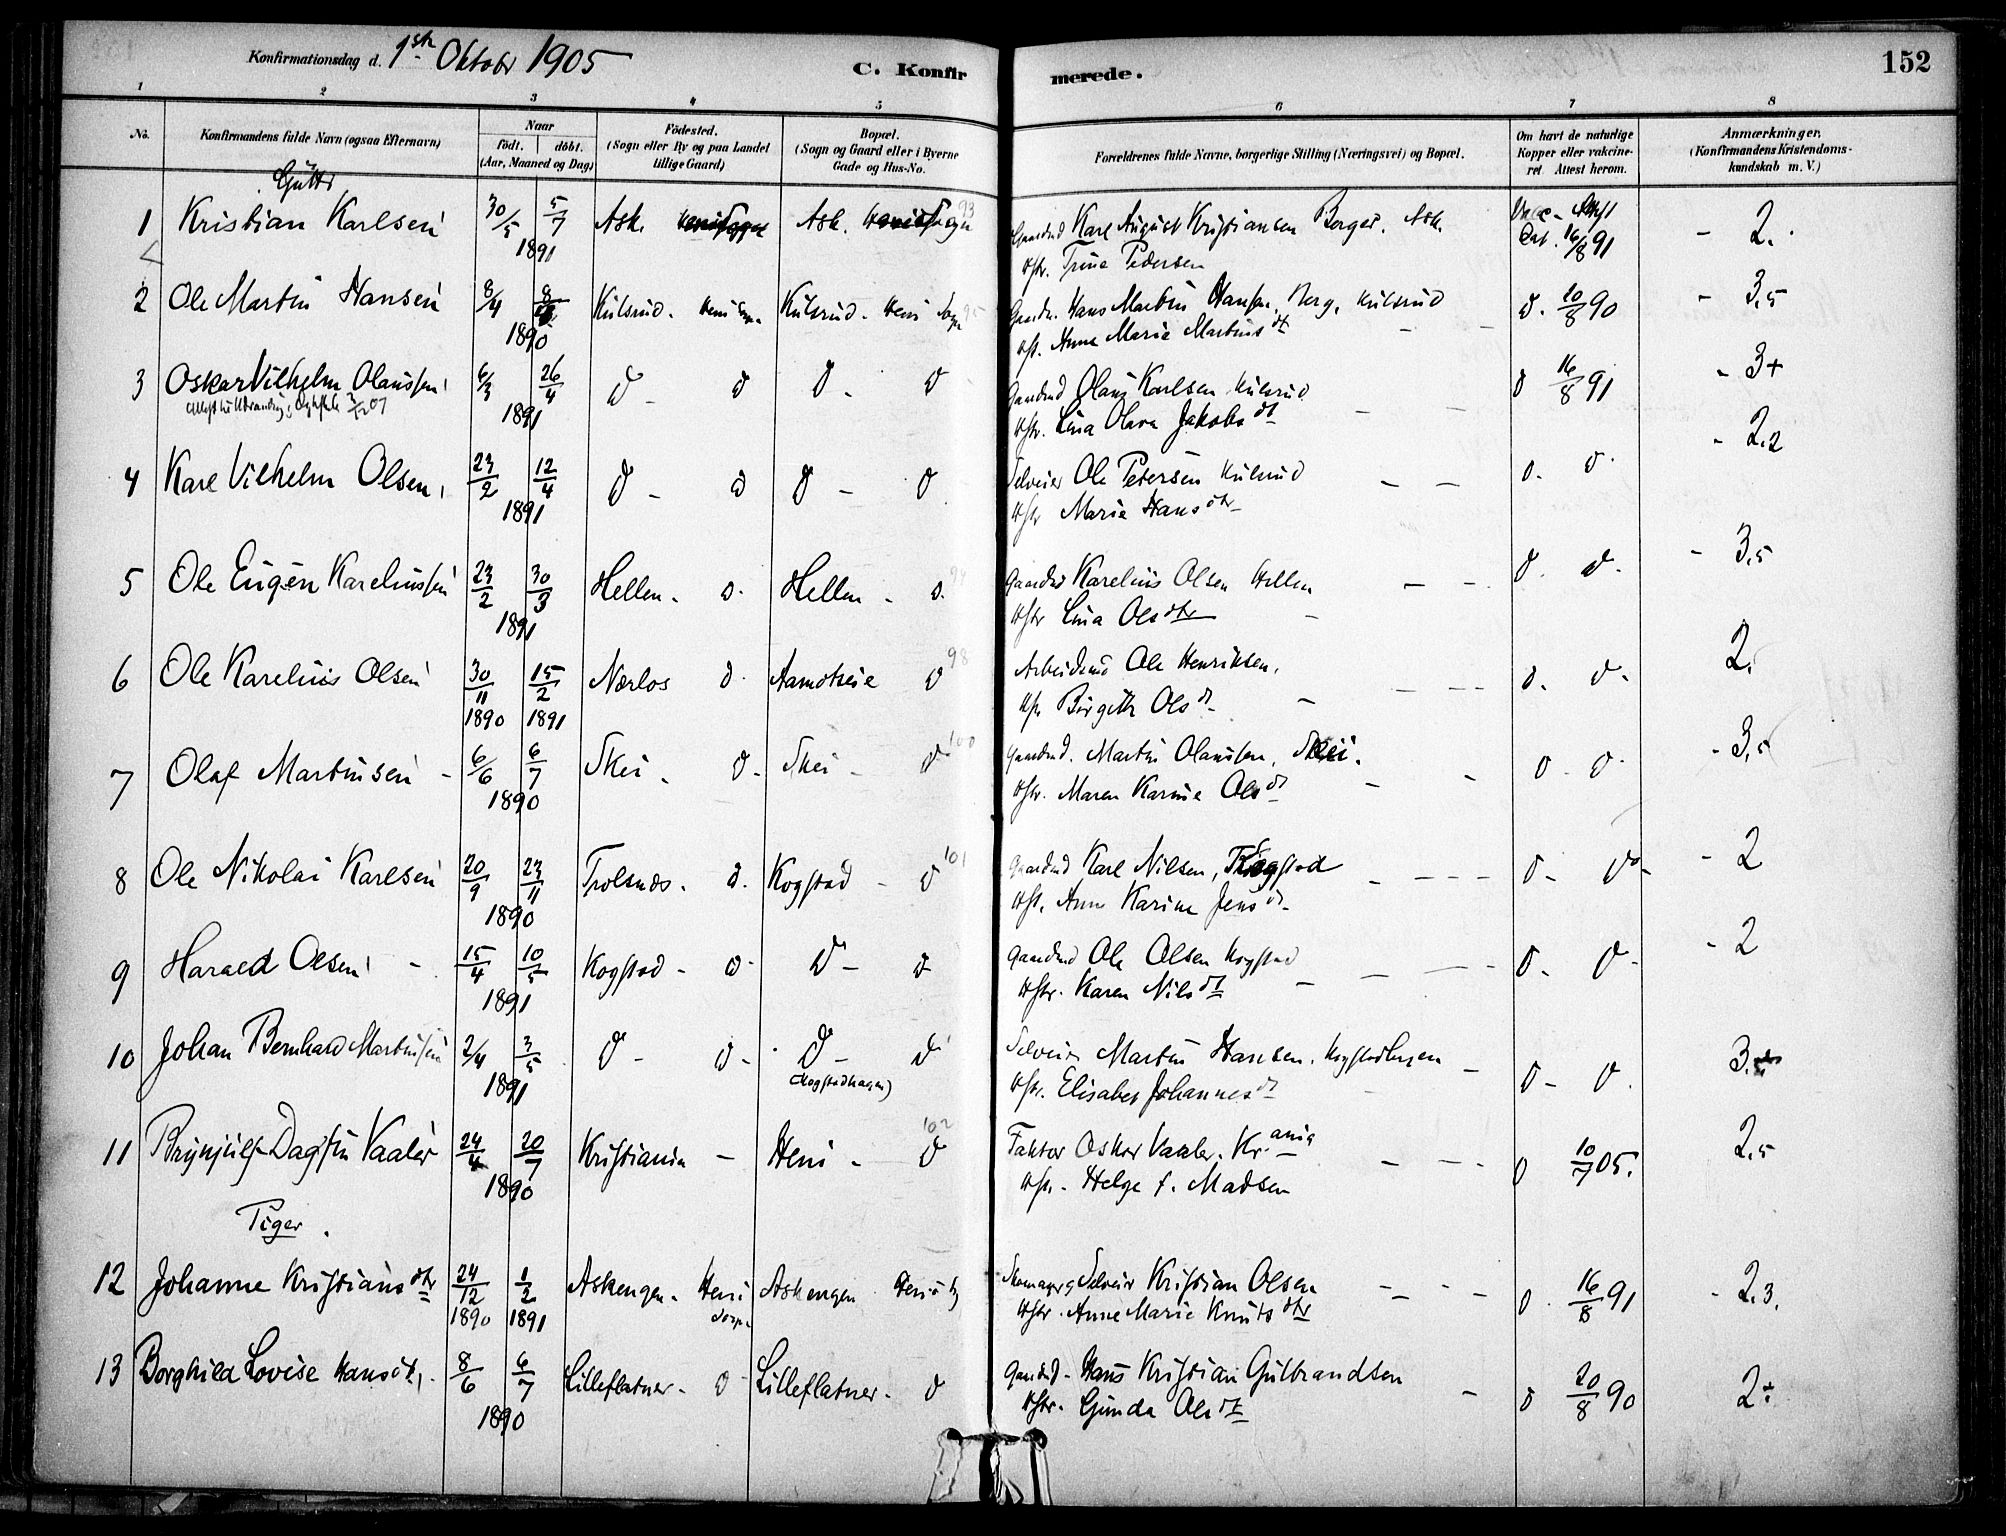 Konfirmationsdag d. 1ste Oktobr 1905 C. Konfir merede. 152
1 2 3 4 5 6 7 8
No. Konfirmandens fulde Navn (ogsaa Efternavn) Naar födt. döbt. (Aar, Maaned og Dag) Födested. (Sogn eller By og paa Landet tillige Gaard) Bopæl. (Sogn og Gaard eller i Byerne Gade og Hus-No. Forældrenes fulde Navne, borgerlige Stilling (Næringsvei) og Bopæl. Om havt de naturlige Kopper eller vakcineret Attest herom. Anmærkninger. (Konfirmandens Kristendomskundskab m. V.)
Gutter
1 Kristian Karlsen 30/5 5/7 1891 Ask. Ask. 93 Gaardmd Karl August Kristiansen Berger. Ask. Vacc. Attest Dat. 16/8 91 - 2.
Hstr. Trine Pedersen
2 Ole Martin Hansen 8/4 8/ 1890 Kulsrud. Heni Sogn Kulsrud. Heni Sogn 95 Gaardm. Hans Martin Hansen, Berg, Kulsrud d. 10/8 90 - 3,5
Hst. Anne Marie Martinsdt
3 Oskar Vilhelm Olaussen 6/3 26/4 1891 d - d d - d Gaardmd Olaus Karlsen Kulsrud d 16/8 91 - 3+
Hstr. Lina Olava Jakobsdt
4 Karl Vilhelm Olsen, 23/2 12/4 1891 d - d d - d Selveier Ole Petersen Kulsrud d. d. - 2,2
Hstr Marie Hansdtr
5 Ole Eugen Kareliussen 23/2 30/3 1891 Hellen. d. Hellen - d. Gaardmd Karelius Olsen Hellen d. d. - 3,5
Hstr Lina Olsdtr
6 Ole Karelius Olsen 30/11 1890 15/2 1891 Nærlos d. Aamotseie d 98 Arbeidsmd Ole Henriksen, d. d. 2.
Hstr Birgith Olsdt
7 Olaf Martinsen - 6/6 6/7 1890 Skei. d - Skei - d 100 Gaardmd. Martin Olaussen, Skei. d - d - 3,5
Hstr. Maren Karine Olsdt
8 Ole Nikolai Karlsen 20/9 23/11 1890 Trolsnæs. d. Kogstad - d 101 Gaardmd Karl Nilsen, Kogstad d - d - - 2
Hst. Anne Karine Jensdt
9 Harald Olsen - 15/4 10/5 1891 Kogstad - d - d - d Gaardmd Ole Olsen Kogstad d - d - - 2
Hstr. Karen Nilsdt
10 Johan Bernhard Martinsen 2/4 3/5 1891 d - d - d - d Selveier Martin Hansen. Kogstadhagen d - d. 3.
(Kogstadhagen) Hstr. Elisabet Johannesdt
11 Brynjulf Dagfin Vaaler 24/4 20/7 1890 Kristiania - Heni - d 102 Faktor Oskar Vaaler. Kr.ania d 10/7 05. 2,5
Hstr. Helga f. Madsen
Piger.
12 Johanne Kristiansdtr 24/12 1890 1/2 1891 Askengen. Heni Sogn Askengen Heni Skomager, Selveier Kristian Olsen d. 16/8 91 - 2,3.
Hstr. Anne Marie Knutsdtr
13 Borghild Lovise Hansdt. 8/6 6/7 1890 Lilleflatner - d Lilleflatner - d Gaardmd - Hans Kristian Gulbrandsen d 20/8 90 2÷
Hstr. Gunda Olsdt